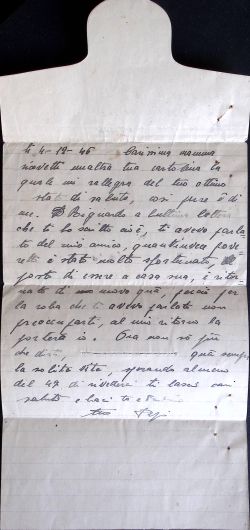 li 4-12-46 Carissima mamma
ricevetti un altra tua cartolina la
quale mi rallegra del tuo ottimo
stato di saluto, così pure è di
me. Riguardo a l'ultima lettera
che ti ho scritto cioè, ti avevo parla-
to del mio amico, quantunque pove-
retto è stato molto sfortunato,
posto di essere a casa sua, è ritor-
nato di nuovo quà, perciò per
la roba che ti avevo parlato non
preoccuparti, al mio ritorno la
porterò io. Ora non so più
che dirti, quà sempre
la solita vita, sperando almeno
del 47 di rivederci ti lascio con
saluti e baci
tuo